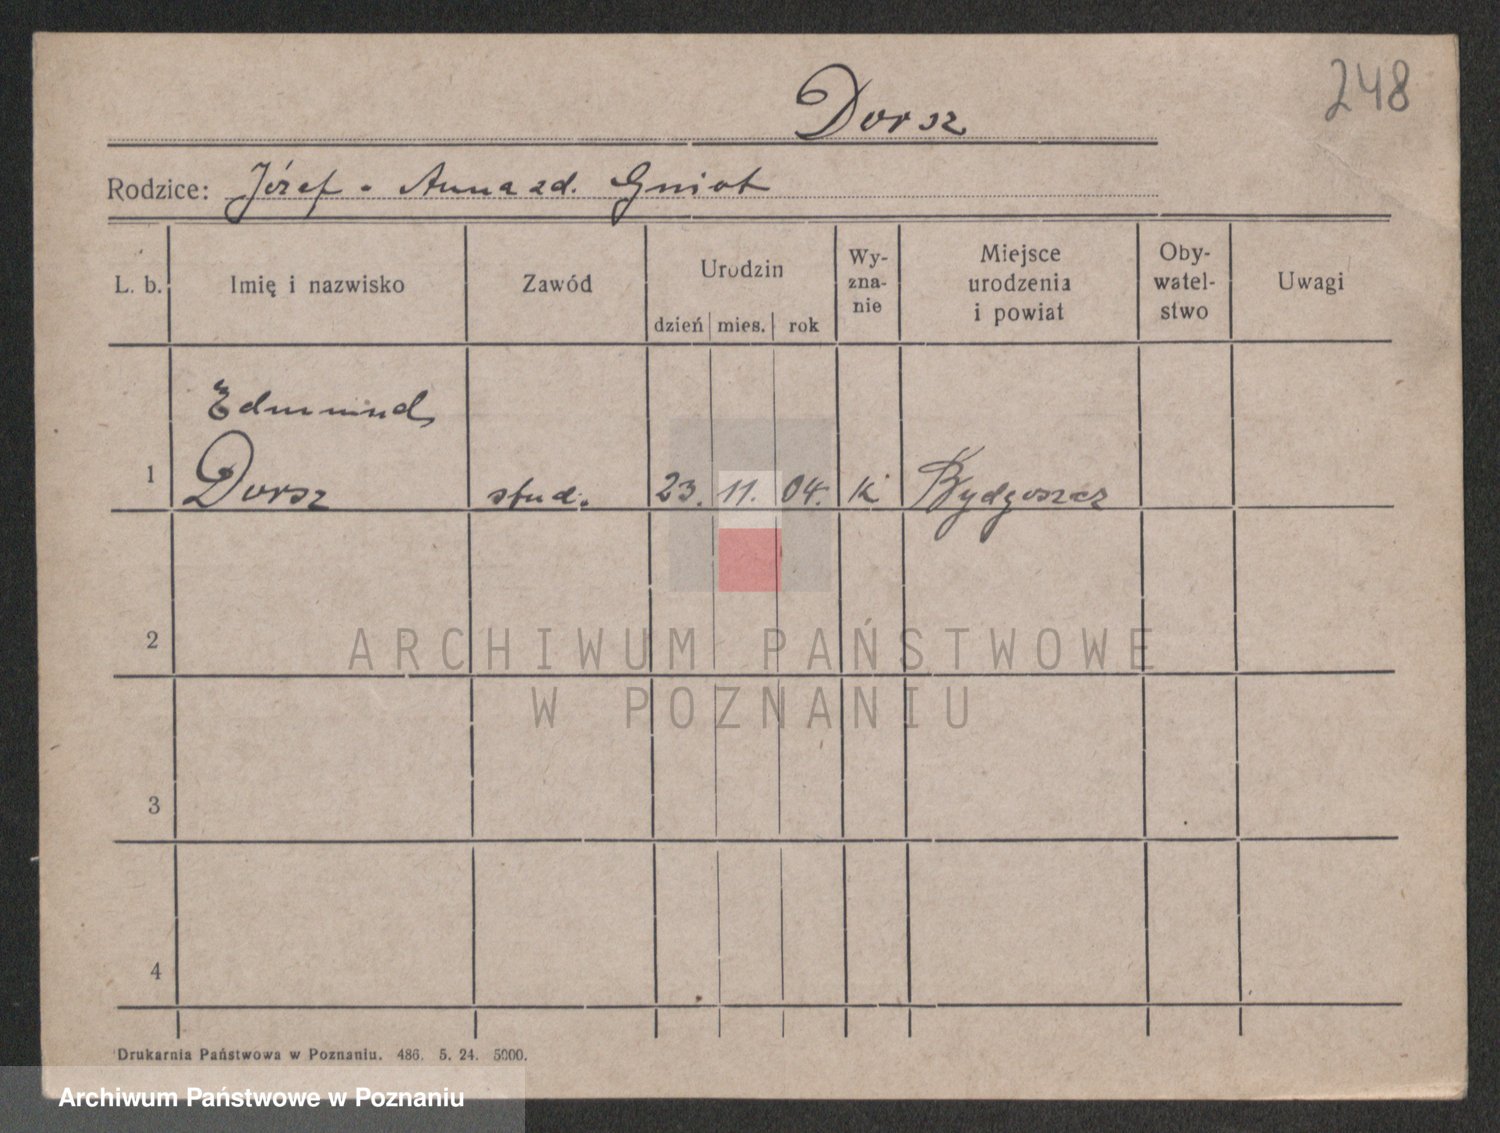 248
Dorsz
Rodzice: Józef - Anna zd. Gniot
L. b.
Imię i nazwisko
Zawód
Urodzin
dzień mies. rok
Wy-
zna-
nie
Miejsce
urodzenia
i powiat
Oby-
watel-
stwo
Uwagi
Edmund
1 Dorsz stud. 23. 11. 04. k Bydgoszcz
2
ARCHIWUM PAŃSTWOWE
W POZNANIU
3
4
Drukarnia Państwowa w Poznaniu. 486. 5. 24. 5000.
Archiwum Państwowe w Poznaniu